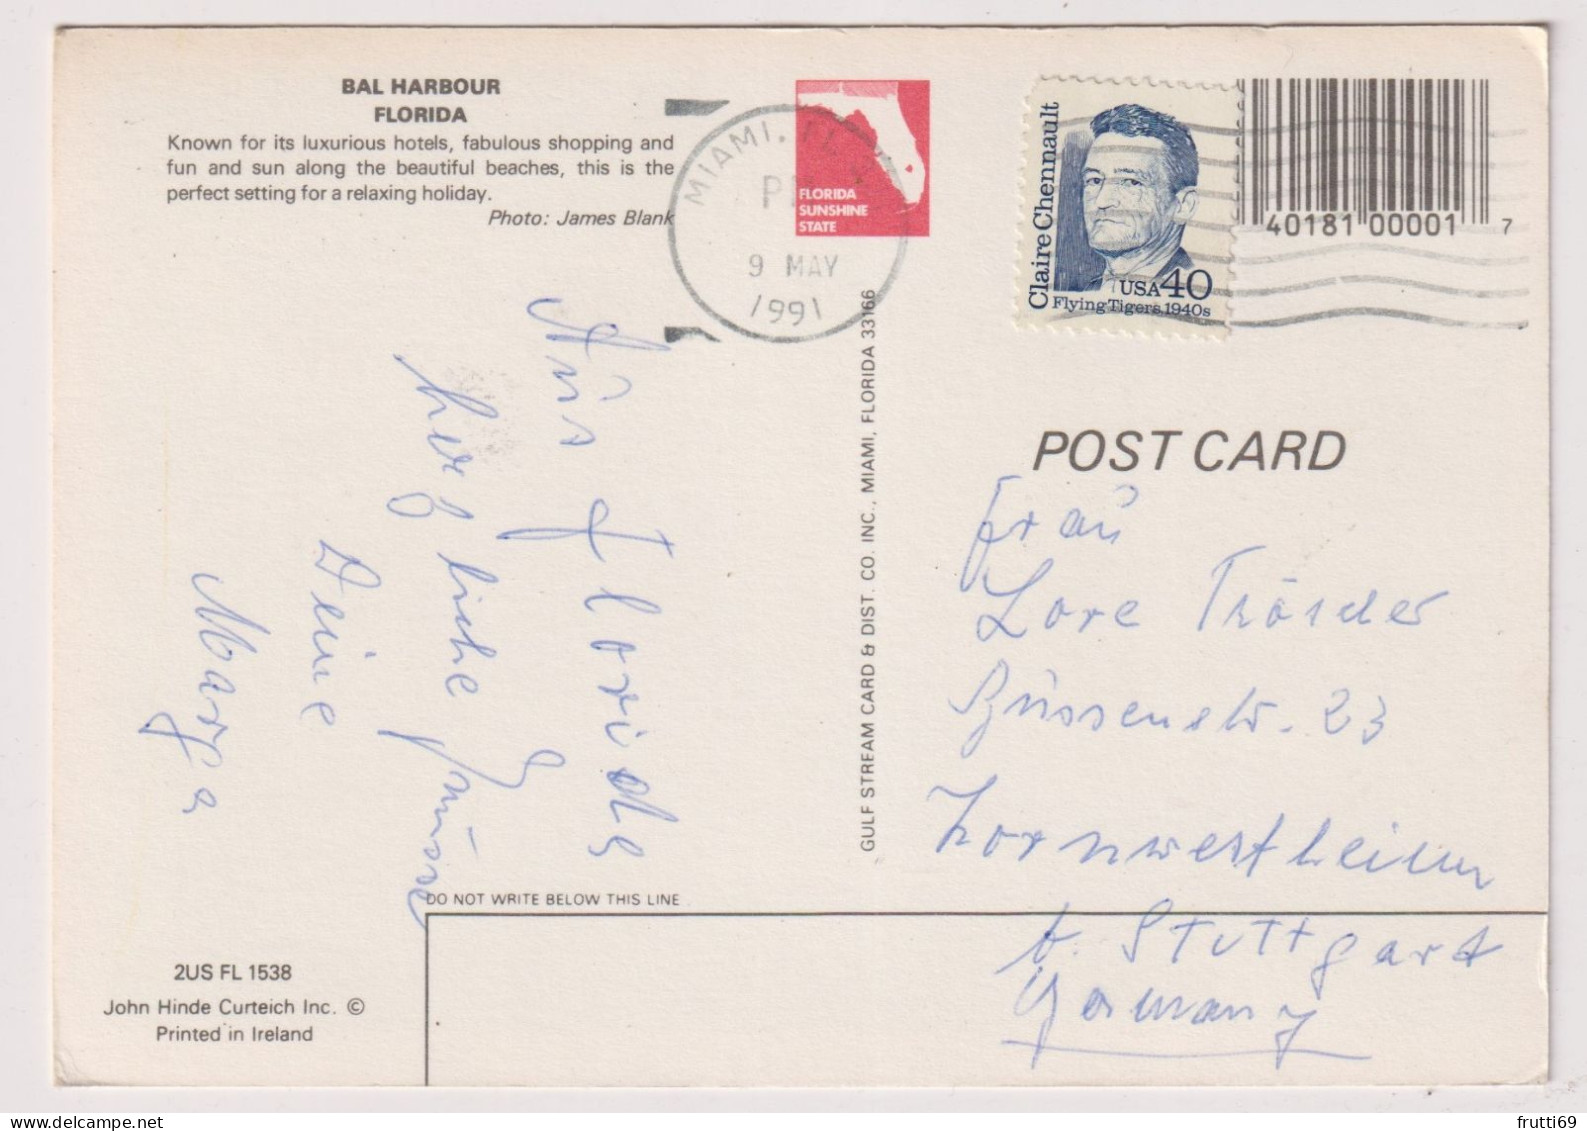 BAL HARBOUR
FLORIDA
Known for its luxurious hotels, fabulous shopping and
fun and sun along the beautiful beaches, this is the
perfect setting for a relaxing holiday.
Photo: James Blank
MIAMI, FL
PM
9 MAY
1991
FLORIDA
SUNSHINE
STATE
Claire Chennault
USA 40
Flying Tigers, 1940s
40181 00001 7
POST CARD
Aus Florida
herzliche Grüsse
Deine
Marga
GULF STREAM CARD & DIST. CO. INC., MIAMI, FLORIDA 33166
Frau
Lore
23
Kornwestheim
b. Stuttgart
Germany
DO NOT WRITE BELOW THIS LINE
2US FL 1538
John Hinde Curteich Inc. ©
Printed in Ireland
frutti69